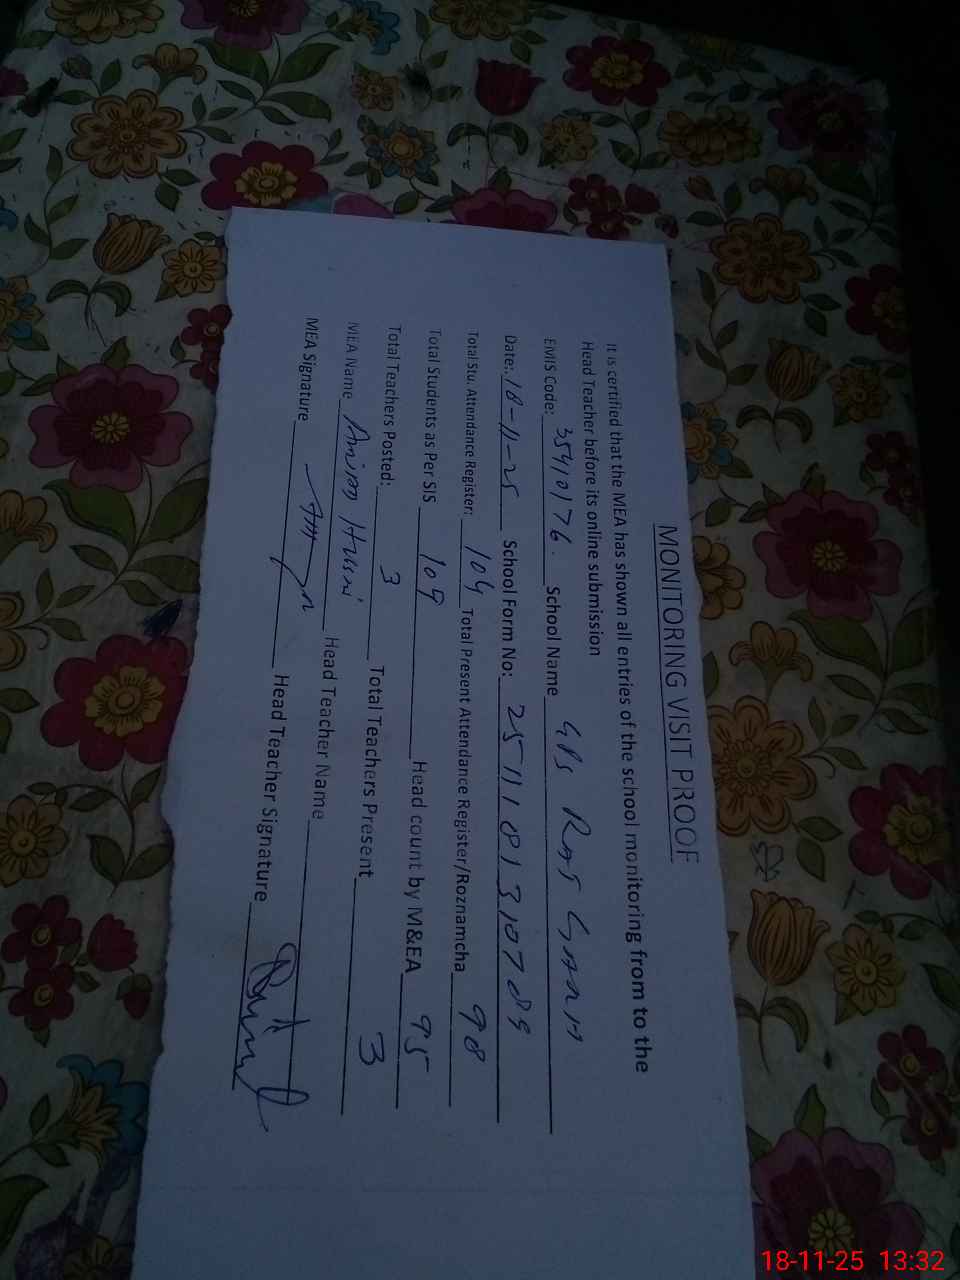 MONITORING VISIT PROOF
It is certified that the MEA has shown all entries of the school monitoring from to the
Head Teacher before its online submission
EMIS Code: 35410176. School Name GPS
Date: 18-11-25 School Form No: 2511181310789
Total Stu. Attendance Register: 104 Total Present Attendance Register/Roznamcha 98
Total Students as Per SIS 109 Head count by M&EA 95
Total Teachers Posted: 3 Total Teachers Present 3
MEA Name Head Teacher Name
MEA Signature Head Teacher Signature
18-11-25 13:32